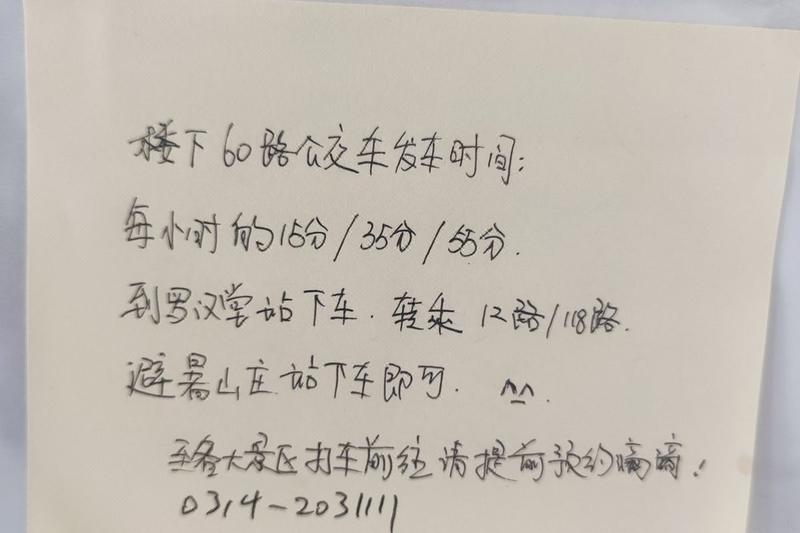 楼下60路公交车发车时间:
每小时的15分/35分/55分.
到罗汉堂站下车.转乘12路/118路.
避暑山庄站下车即可. ^_^.
至各大景区打车前往请提前预约嘀嘀!
0314-2031111